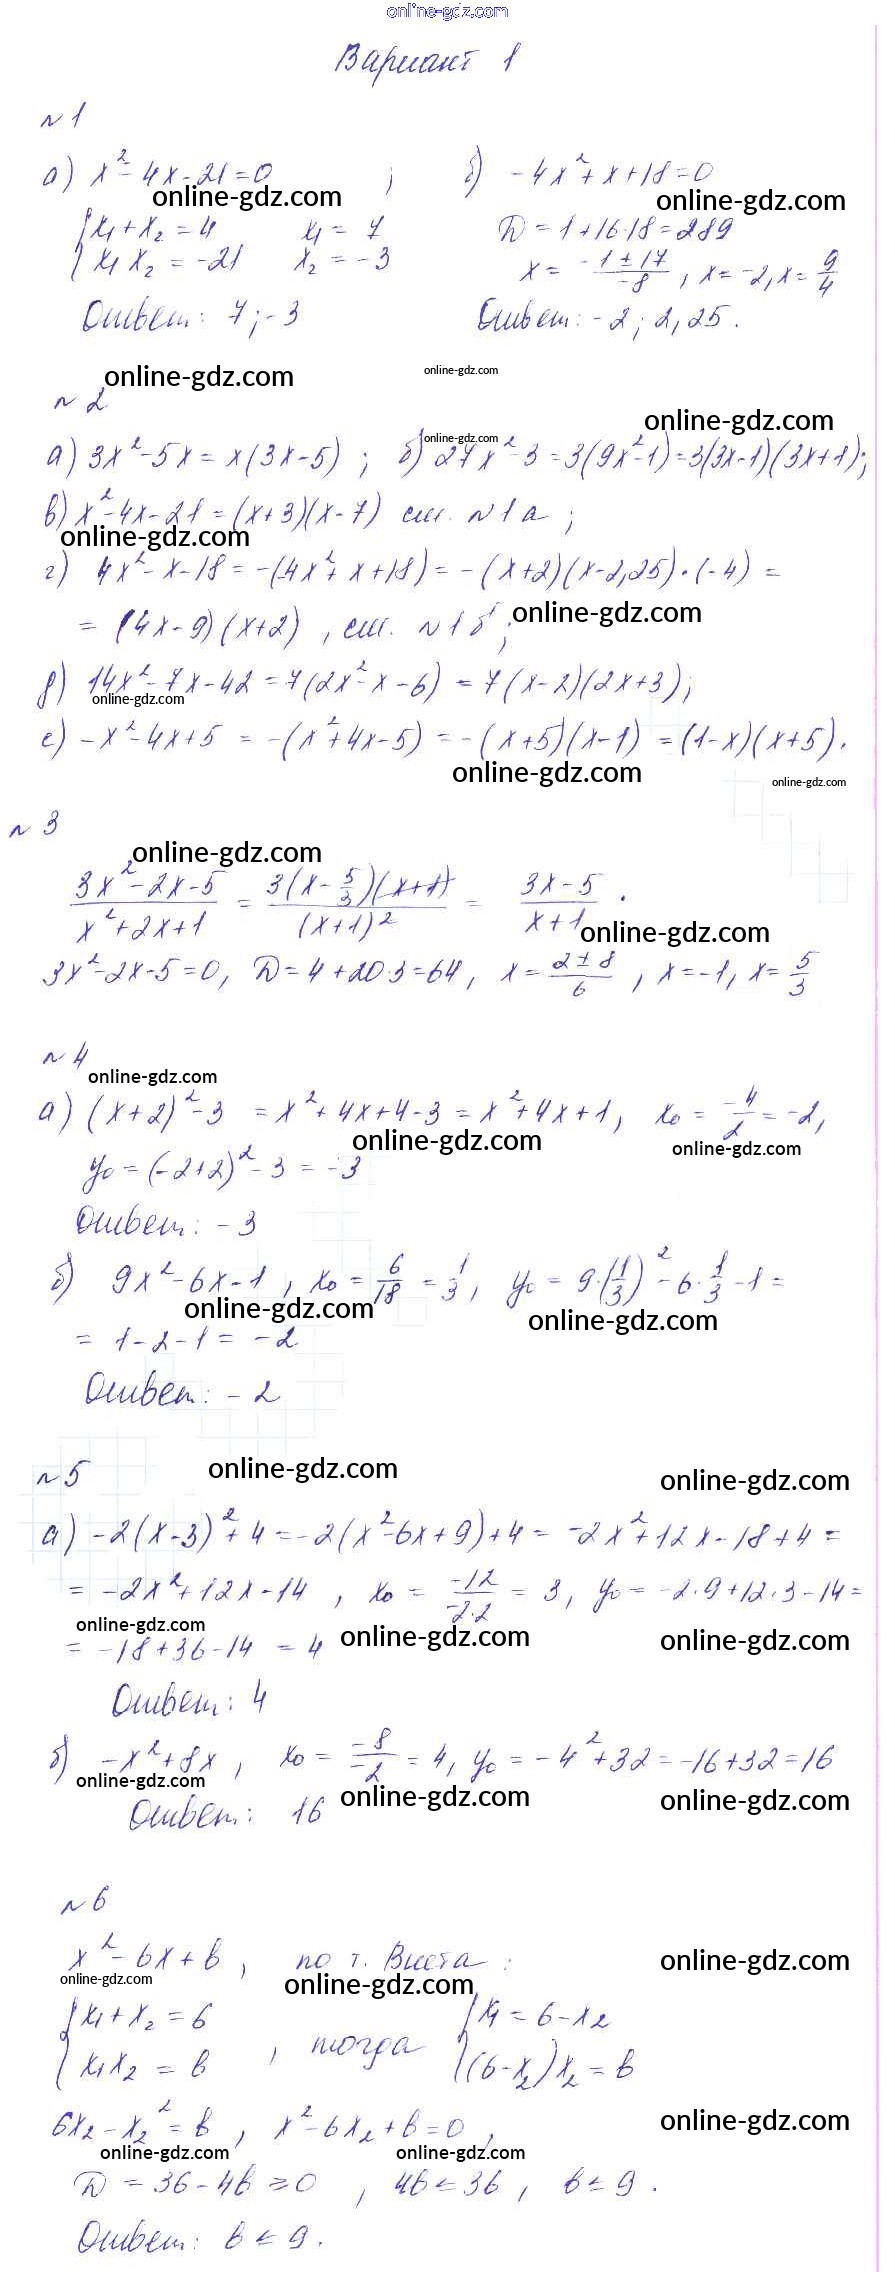 online-gdz.com
Вариант 1
№1
а) x²-4x-21=0 ; б) -4x²+x+18=0
online-gdz.com online-gdz.com
{x₁+x₂=4 x₁=7 D=1+16·18=289
{x₁x₂=-21 x₂=-3 x=(-1±17)/(-8), x=-2, x=9/4
Ответ: 7;-3 Ответ: -2; 2,25.
online-gdz.com online-gdz.com
№2
online-gdz.com
online-gdz.com
а) 3x²-5x=x(3x-5) ; б) 27x²-3=3(9x²-1)=3(3x-1)(3x+1);
в) x²-4x-21=(x+3)(x-7) см. №1а ;
online-gdz.com
г) 4x²-x-18=-(-4x²+x+18)=-(x+2)(x-2,25)·(-4)=
online-gdz.com
=(4x-9)(x+2), см. №1б;
д) 14x²-7x-42=7(2x²-x-6)=7(x-2)(2x+3);
online-gdz.com
е) -x²-4x+5=-(x²+4x-5)=-(x+5)(x-1)=(1-x)(x+5).
online-gdz.com online-gdz.com
№3
online-gdz.com
(3x²-2x-5)/(x²+2x+1)=(3(x-5/3)(x+1))/((x+1)²)=(3x-5)/(x+1).
online-gdz.com
3x²-2x-5=0, D=4+20·3=64, x=(2±8)/6, x=-1, x=5/3
№4
online-gdz.com
а) (x+2)²-3=x²+4x+4-3=x²+4x+1, x₀=-4/2=-2,
online-gdz.com online-gdz.com
y₀=(-2+2)²-3=-3
Ответ: -3
б) 9x²-6x-1, x₀=6/18=1/3, y₀=9·(1/3)²-6·1/3-1=
online-gdz.com online-gdz.com
=1-2-1=-2
Ответ: -2
online-gdz.com online-gdz.com
№5
а) -2(x-3)²+4=-2(x²-6x+9)+4=-2x²+12x-18+4=
=-2x²+12x-14, x₀=-12/(-2·2)=3, y₀=-2·9+12·3-14=
online-gdz.com online-gdz.com online-gdz.com
=-18+36-14=4
Ответ: 4
б) -x²+8x, x₀=-8/-2=4, y₀=-4²+32=-16+32=16
online-gdz.com online-gdz.com online-gdz.com
Ответ: 16
№6
x²-6x+b, по т. Виета:
online-gdz.com online-gdz.com online-gdz.com
{x₁+x₂=6 , тогда {x₁=6-x₂
{x₁x₂=b (6-x₂)x₂=b
6x₂-x₂²=b, x²-6x₂+b=0,
online-gdz.com
online-gdz.com online-gdz.com
D=36-4b≥0, 4b≤36, b≤9.
Ответ: b≤9.